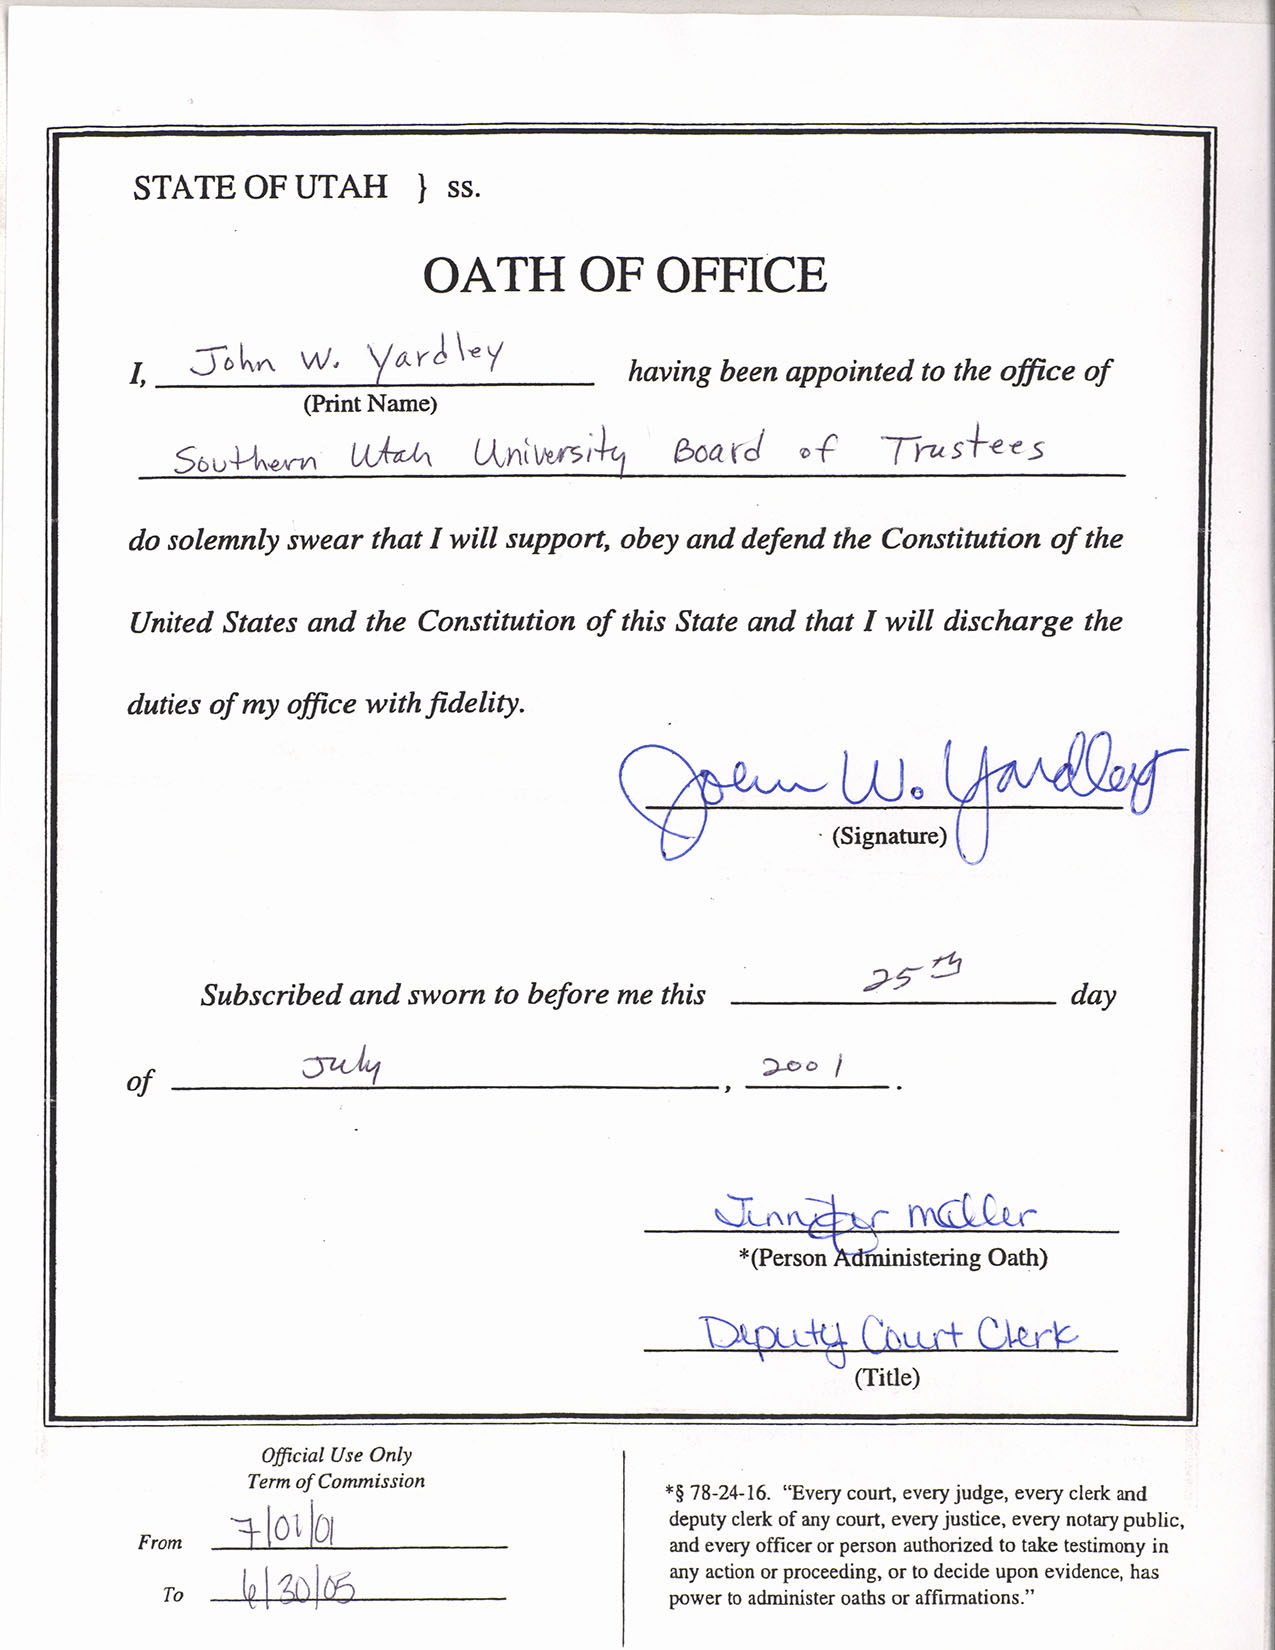 STATE OF UTAH } ss.
OATH OF OFFICE
I, John W. Yardley having been appointed to the office of
(Print Name)
Southern Utah University Board of Trustees
do solemnly swear that I will support, obey and defend the Constitution of the
United States and the Constitution of this State and that I will discharge the
duties of my office with fidelity.
John W. Yardley
(Signature)
Subscribed and sworn to before me this 25th day
of July, 2001.
Jennifer Miller
*(Person Administering Oath)
Deputy Court Clerk
(Title)
Official Use Only
Term of Commission
From 7/01/01
To 6/30/05
*§ 78-24-16. “Every court, every judge, every clerk and
deputy clerk of any court, every justice, every notary public,
and every officer or person authorized to take testimony in
any action or proceeding, or to decide upon evidence, has
power to administer oaths or affirmations.”